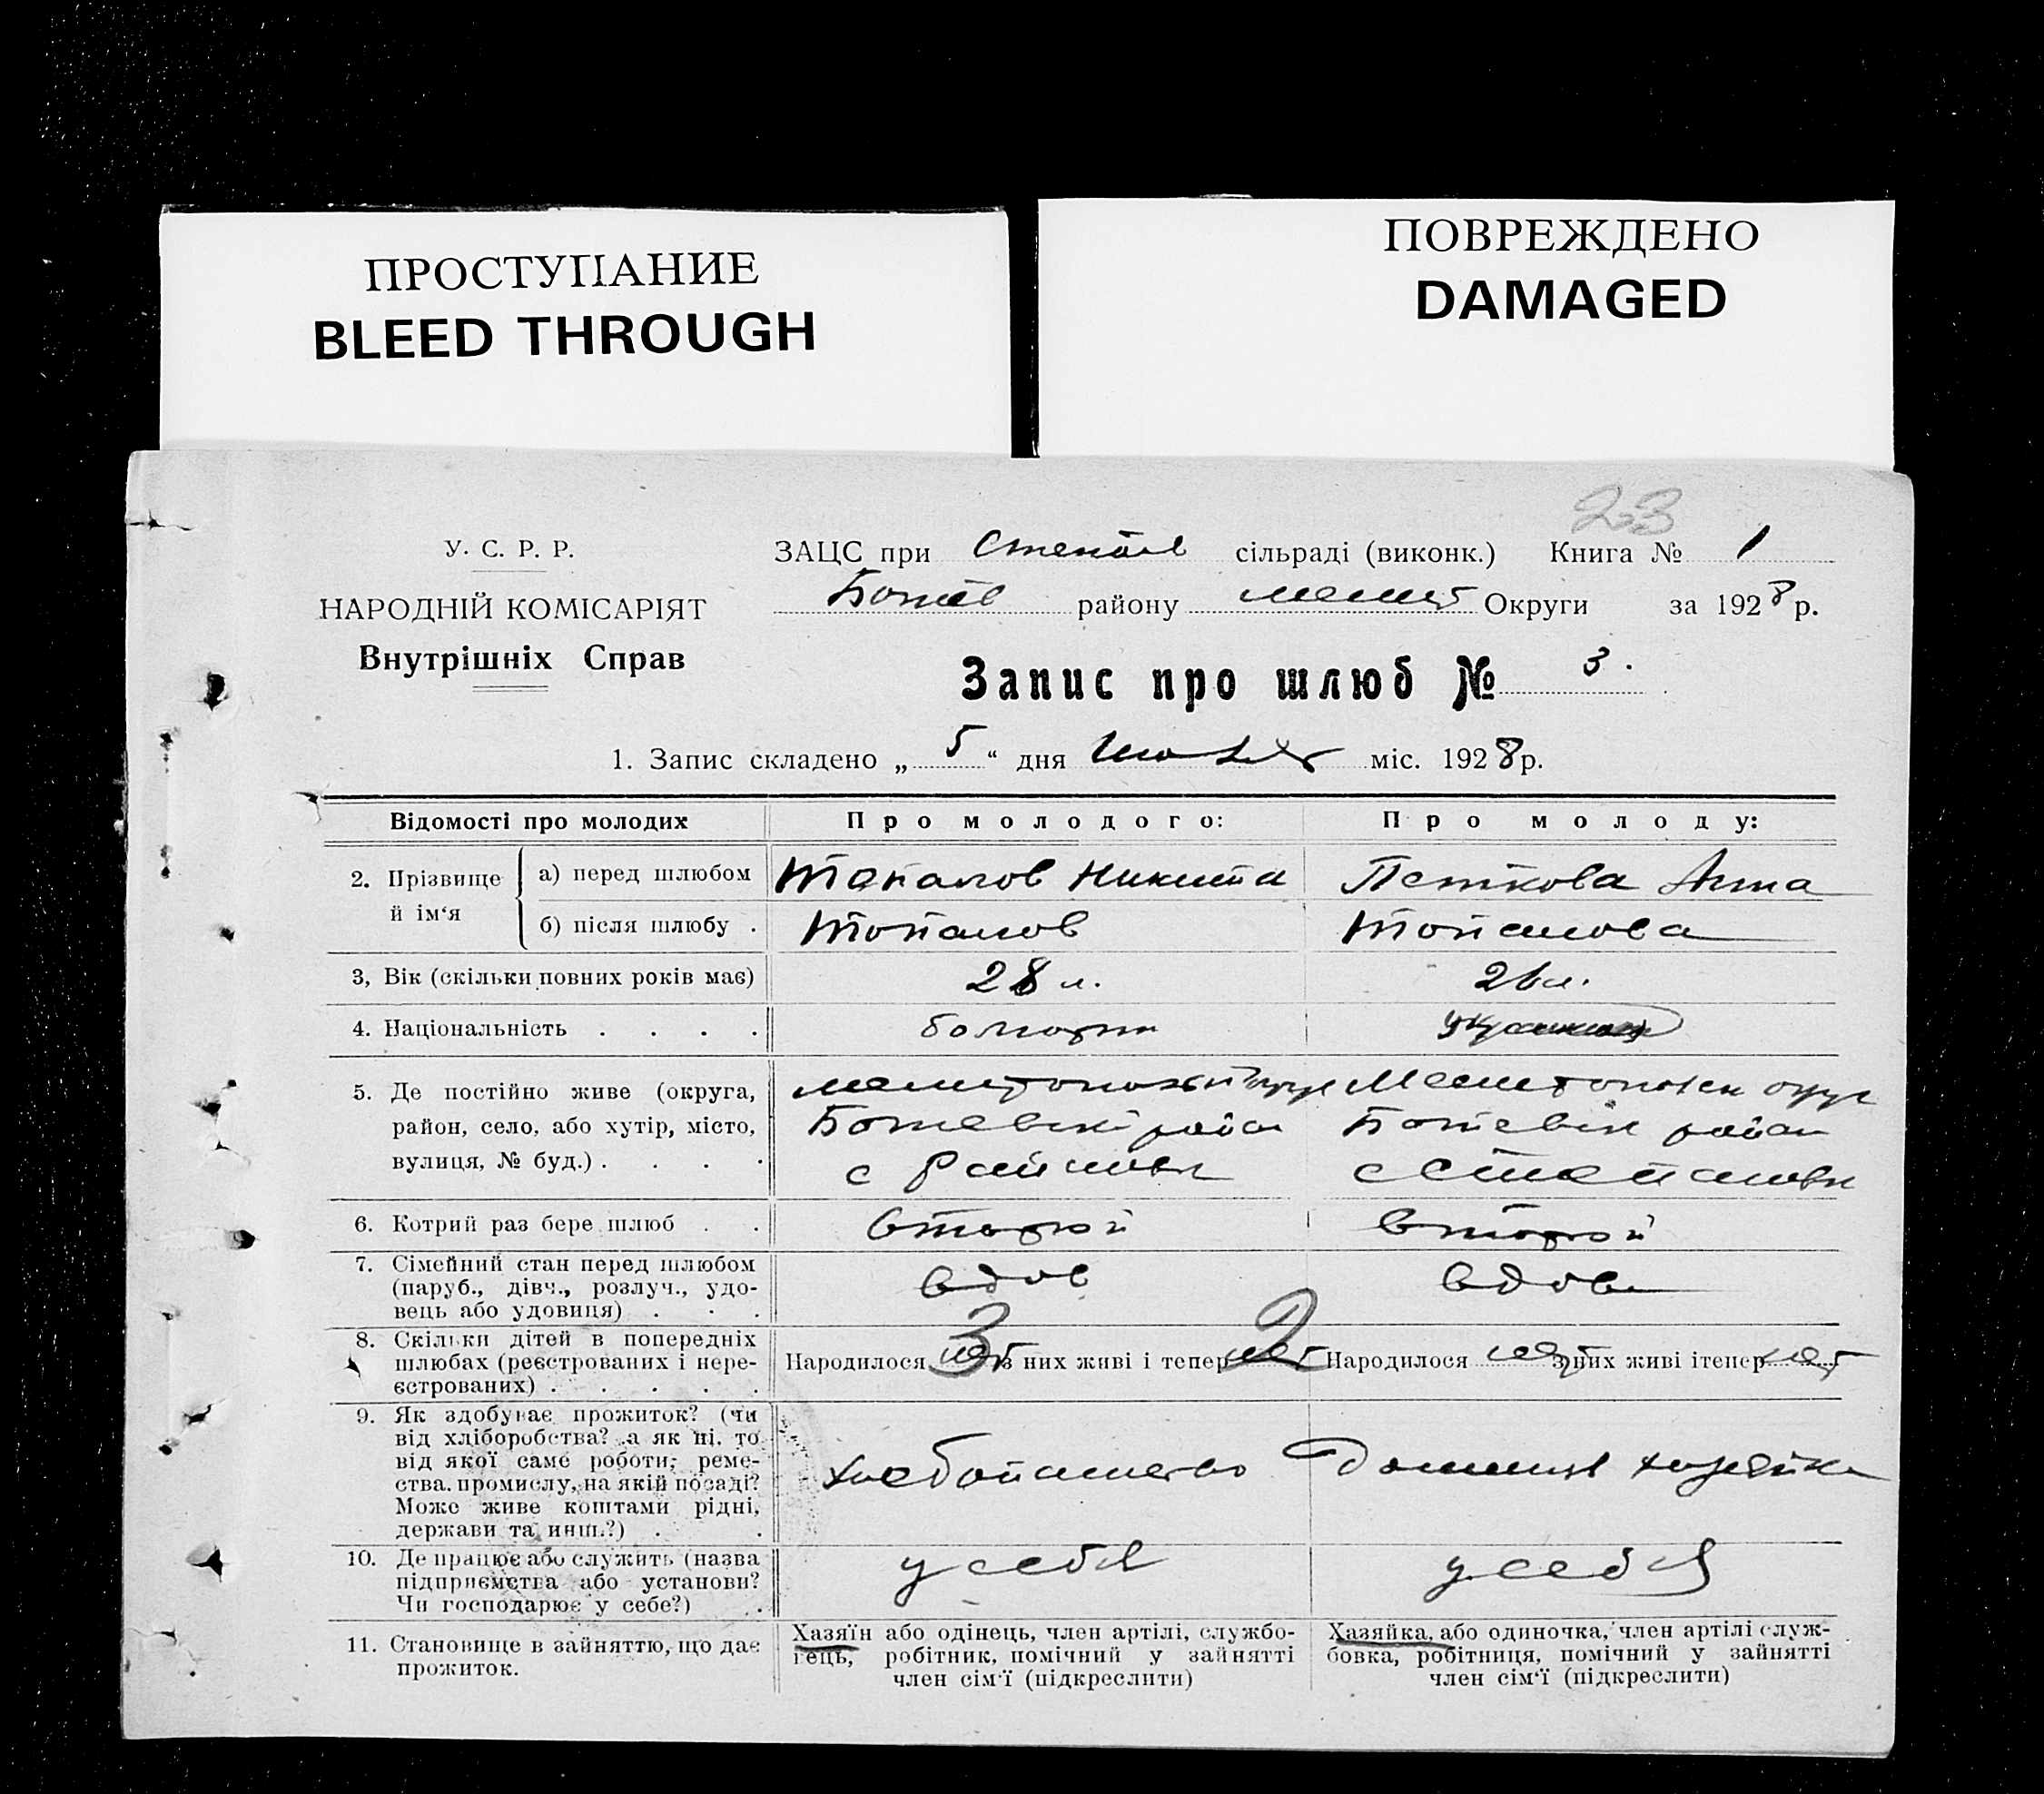 ПРОСТУПАНИЕ
BLEED THROUGH
ПОВРЕЖДЕНО
DAMAGED
23
У. С. Р. Р.
НАРОДНІЙ КОМІСАРІЯТ
Внутрішніх Справ
ЗАЦС при сільраді (виконк.) Книга № 1
району Округи за 1928 р.
Запис про шлюб № 3.
1. Запис складено „ 5 “ дня міс. 1928 р.
Відомості про молодих
Про молодого:
Про молоду:
2. Прізвище й ім‘я
а) перед шлюбом
Топалов Никита
Петкова Анна
б) після шлюбу .
Топалов
Топалова
3, Вік (скільки повних років має)
28 л.
26 л.
4. Національність . . . .
болгарин
5. Де постійно живе (округа,
район, село, або хутір, місто,
вулиця, № буд.) . . . .
район
с
район
с
6. Котрий раз бере шлюб . .
второй
второй
7. Сімейний стан перед шлюбом
(паруб., дівч., розлуч., удо-
вець або удовиця) . . .
вдов
вдова
8. Скільки дітей в попередніх
шлюбах (реєстрованих і нере-
єстрованих) . . . . .
Народилося 3 з них живі і тепер 2
Народилося нет з них живі і тепер нет
9. Як здобуває прожиток? (чи
від хліборобства? а як ні, то
від якої саме роботи; реме-
ства, промислу, на якій посаді?
Може живе коштами рідні,
держави та инш.?) . .
хлебопашество
Домашняя хозяйка
10. Де працює або служить (назва
підприємства або установи?
Чи господарює у себе?) .
у себя
у себя
11. Становище в зайняттю, що дає
прожиток.
Хазяїн або одінець, член артілі, службо-
вець, робітник, помічний у зайнятті
член сім‘ї (підкреслити)
Хазяйка, або одиночка, член артілі служ-
бовка, робітниця, помічний у зайнятті
член сім‘ї (підкреслити)